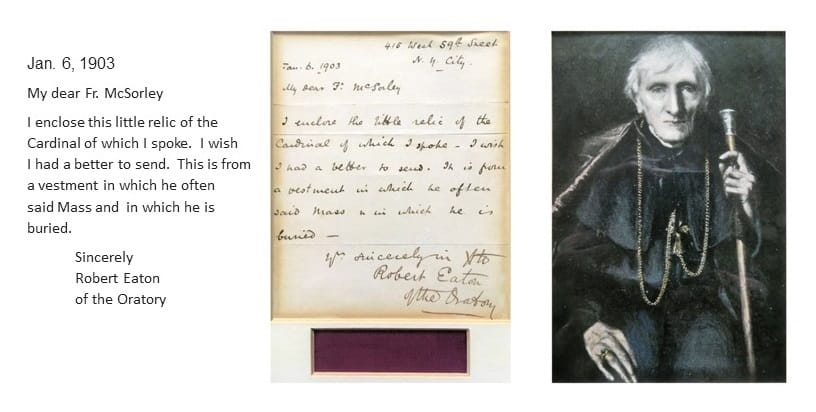 Jan. 6, 1903
My dear Fr. McSorley
I enclose this little relic of the
Cardinal of which I spoke. I wish
I had a better to send. This is from
a vestment in which he often
said Mass and in which he is
buried.
Sincerely
Robert Eaton
of the Oratory
416 West 59th Street
N. Y. City.
Jan. 6. 1903
My dear Fr. McSorley
I enclose the little relic of the
Cardinal of which I spoke - I wish
I had a better to send. It is from
a vestment in which he often
said Mass & in which he is
buried —
Yrs sincerely in Xto
Robert Eaton
of the Oratory